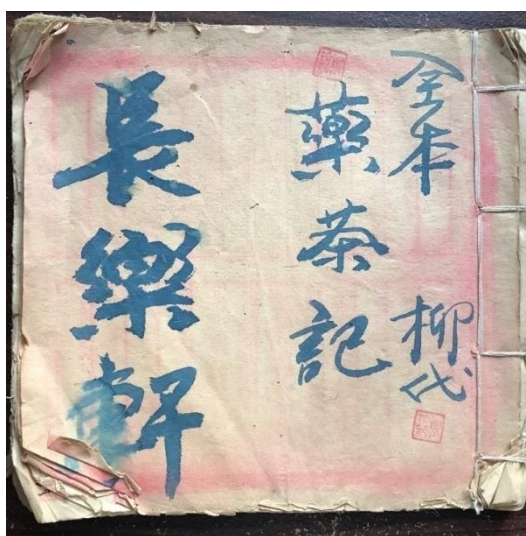 全本 柳代
藥茶記
長樂軒